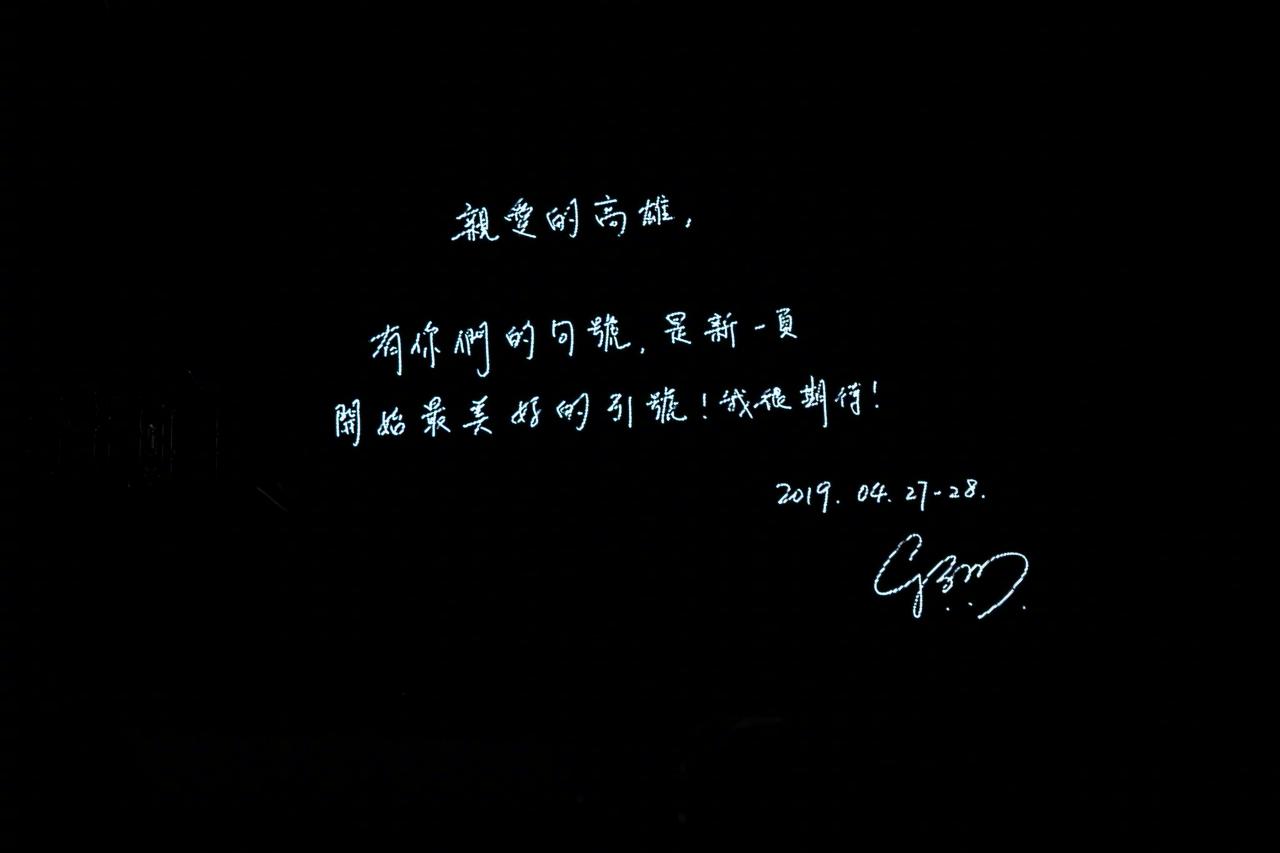 親愛的高雄,
有你們的句號,是新一頁
開始最美好的引號!我很期待!
2019.04.27-28.
G.E.M.